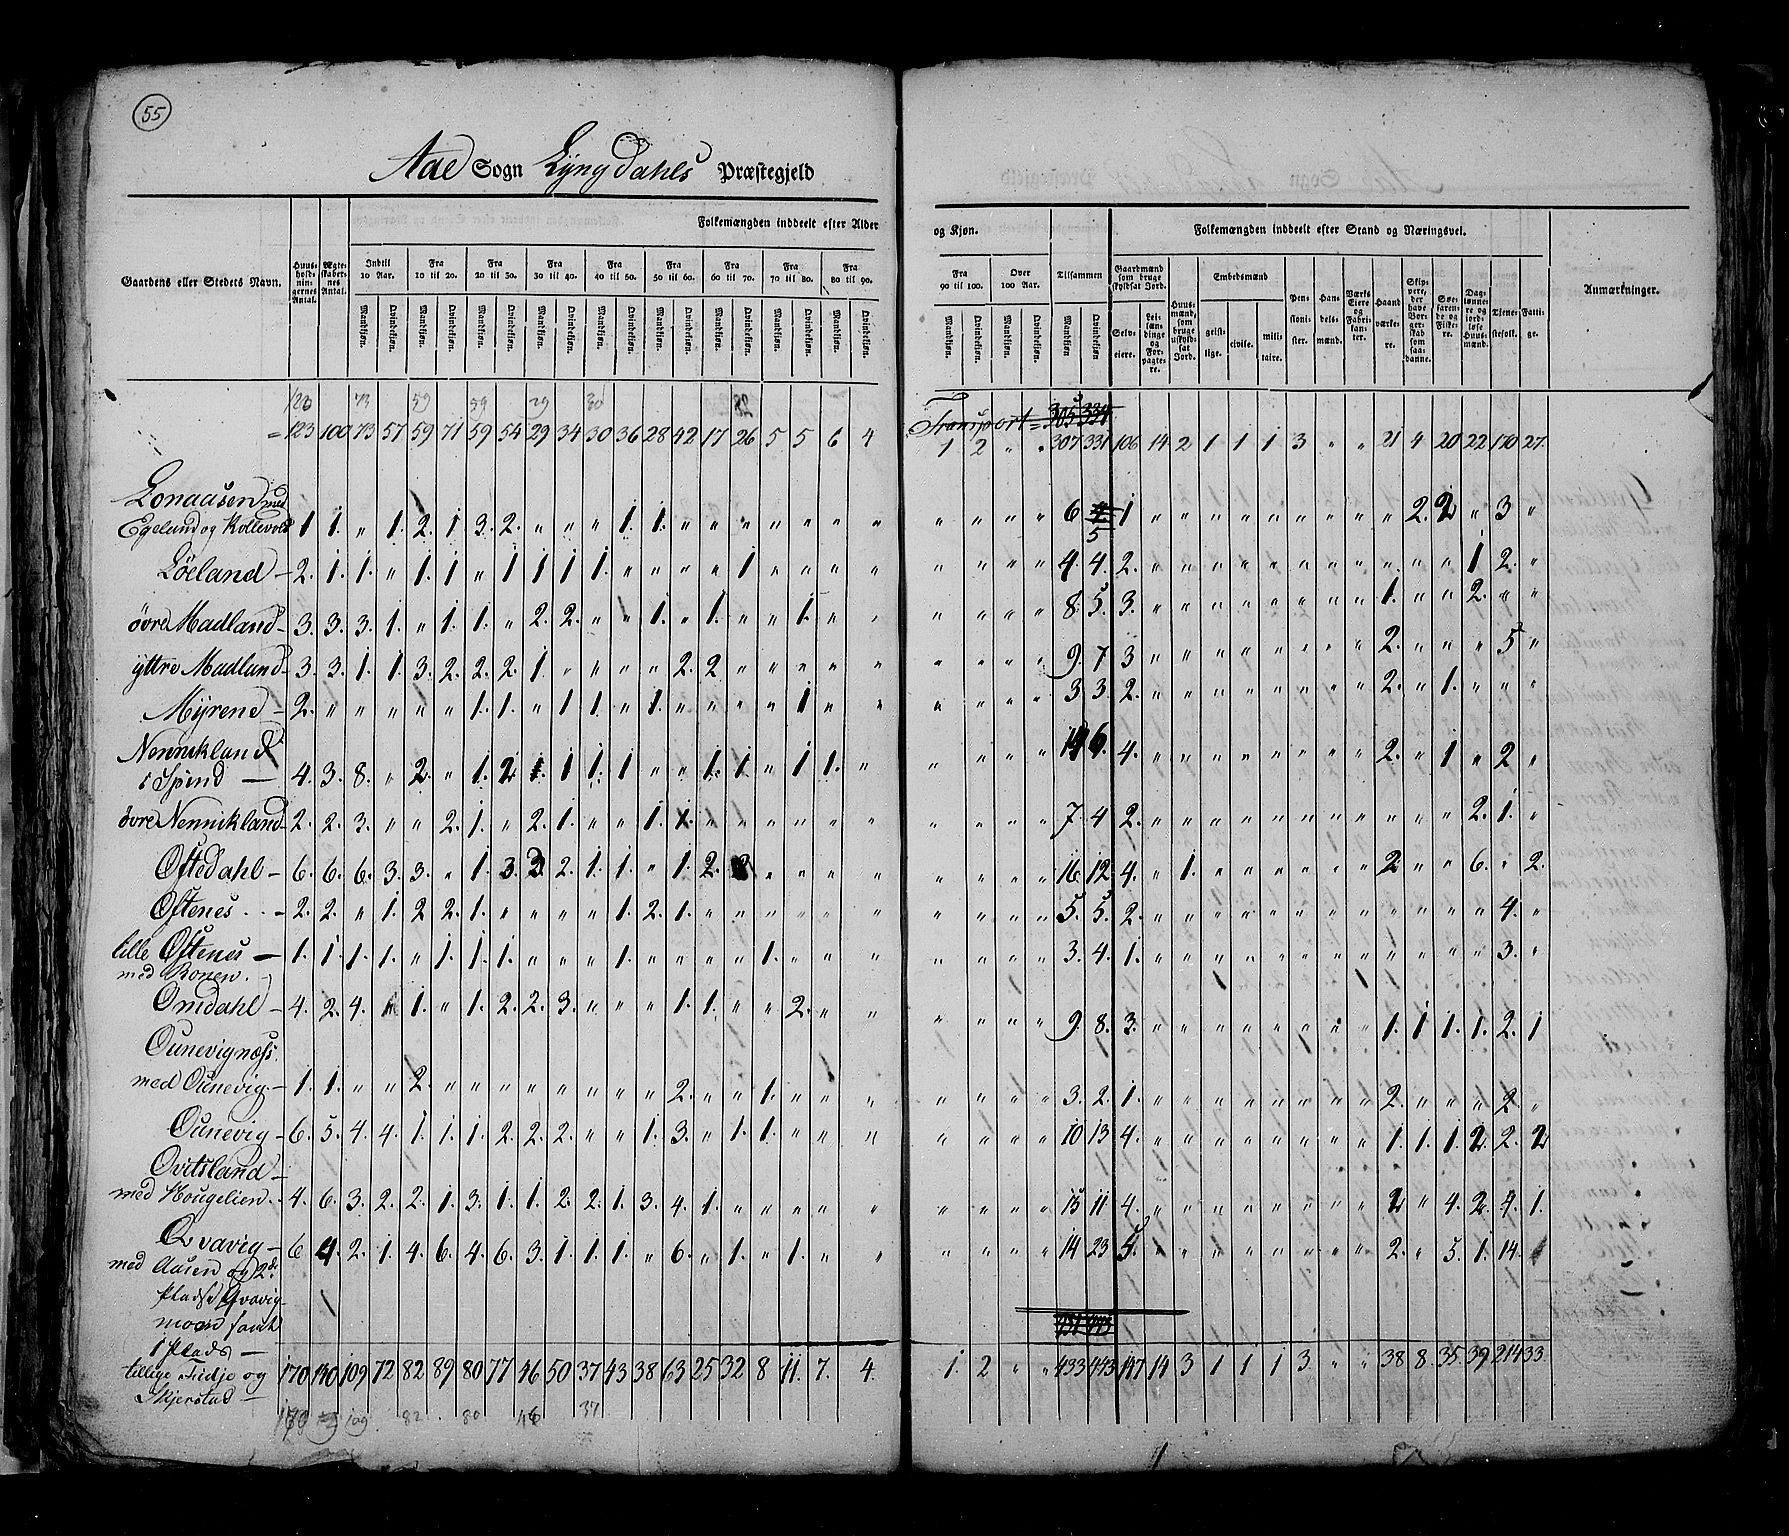 55
Aae Sogn Lyngdahls Præstegjeld
Folkemængden inddeelt efter Alder og Kjøn. Folkemængden inddeelt efter Stand og Næringsvei.
Gaardens eller Stedets Navn. Huusholdningernes Antal. Ægteskabernes Antal. Indtil 10 Aar. Fra 10 til 20. Fra 20 til 30. Fra 30 til 40. Fra 40 til 50. Fra 50 til 60. Fra 60 til 70. Fra 70 til 80. Fra 80 til 90. Fra 90 til 100. Over 100 Aar. Tilsammen
Gaardmænd som bruge skyldsat Jord. Selveiere. Leilændinge og Forpagtere. Huusmænd, som bruge uskyldsat Jord. Embedsmænd geistlige. civile. militaire. Pensionister. Handelsmænd. Værks Eiere og Fabrikanter. Haandværkere. Skippere, der have Borgerskab som saadanne. Søefarende og Fiskere. Daglønnere og jordløse Huusmænd. Tjenestefolk. Fattige. Anmærkninger.
Mandkjøn. Qvindekjøn. Mandkjøn. Qvindekjøn. Mandkjøn. Qvindekjøn. Mandkjøn. Qvindekjøn. Mandkjøn. Qvindekjøn. Mandkjøn. Qvindekjøn. Mandkjøn. Qvindekjøn. Mandkjøn. Qvindekjøn. Mandkjøn. Qvindekjøn. Mandkjøn. Qvindekjøn. Mandkjøn. Qvindekjøn. Mandkjøn Qvindekjøn
123 73 59 59 29 30 28
Transport = 305 334
= 123 100 73 57 59 71 59 54 29 34 30 36 28 42 17 26 5 5 6 4 1 2 " " 307 331 106 14 2 1 1 1 3 " " 21 4 20 22 170 27
Lonaasen med
Egeland og Kollevold 1 1. " 1. 2. 1 3. 2. " " " 1. 1. " " " " " " " " " " " 6 5 1 " " " " " " " " " 2. 2 " 3 "
Löeland – 2. 1. 1. " 1. 1 " 1 1 1 1. " " " " 1 " " " " " " " " 4. 4. 2. " " " " " " " " " " " 1 2. "
övre Madland – 3. 3. 3. 1. " 1. 1. " 2. 2. " " 1. " 1. " " 1. " " " " " " 8. 5. 3. " " " " " " " " 1. " " 2. " "
yttre Madland – 3. 3. 1. 1. 3. 2. 2. 2. 1. " " " " 2. 2 " " " " " " " " " 9. 7 3 " " " " " " " " 2. " " " 5 "
Myrend – 2. " " " " " 1. 1. " 1 1. " 1. " " " " 1 " " " " " " 3 3. 2. " " " " " " " " 2. " 1. " " "
Nennikland
i Spind – 4. 3. 8. " 2. " 1. 2 1. 1 1. 1 " " 1. 1. " 1 1. " " " " " 14 6. 4. " " " " " " " " 2. " 1 " 2 "
övre Nennikland – 2. 2. 3. " " 2. 1. " 2. 1. " " 1. 1. " " " " " " " " " " 7. 4 2. " " " " " " " " " " " 2. 1. "
Oftedahl – 6. 6. 6. 3. 3. " 1. 3. 3. 2. 1. 1. " 1. 2. 2 " " " " " " " " 16. 12. 4. " 1. " " " " " " 2 " " 6. " 2.
Oftenes – 2. 2. " 1. 2 2. 1. " " " " 1. 2. 1. " " " " " " " " " " 5. 5. 2. " " " " " " " " " " " " 4. "
lille Oftenes – 1. 1. 1. 1. " 1. 1. 1. " " " 1. " " " " 1. " " " " " " " 3. 4. 1. " " " " " " " " " " " " 3. "
med Ronen.
Omdahl – 4. 2. 4. 1 1. " 1. 2. 2. 3. " " " 1. 1. " " 2. " " " " " " 9. 8. 3. " " " " " " " " 1. 1 1. 1. 2. 1
Ounevignæss.
med Ounevig. – 1. 1. " " 2. " " " " " " " " 2. " " 1. " " " " " " " 3. 2. 1. " " " " " " " " 2. " " " 2 "
Ounevig – 6. 5. 4. 4. 1. 1. 1. 2. 2. 2. " " 1. 3. " 1. 1. " " " " " " " 10 13 4. " " " " " " " " 1. 1. 1. 2 2. 2
Ovitsland –
med Hougelien. 4. 6. 3. 2. 2. 1. 3. 1. 1. 2. 2. 1. 3. 4. 1. " " " " " " " " " 15 11. 4. " " " " " " " " 2 " 4. 2. 4. 1.
Qvavig – 6 4. 2. 1. 4. 6. 4. 6. 3. 1. 1. 1. " 6. " 1. " 1. " " " " " " 14 23 5. " " " " " " " " 2. " 5. 1. 14.
med Aasen og 2de
Pladse Qvavig-
moen samt
1 Plads –
tillige Fidje og 170 130 109 72 82 89 80 77 46 50 37 43 38 63 25 32 8 11. 7. 4. 1. 2 " " 433 443 147 14 3 1 1 1 3. " " 38 8. 35. 39 214 33.
Skjerstad –
170 109 82 80 46 37